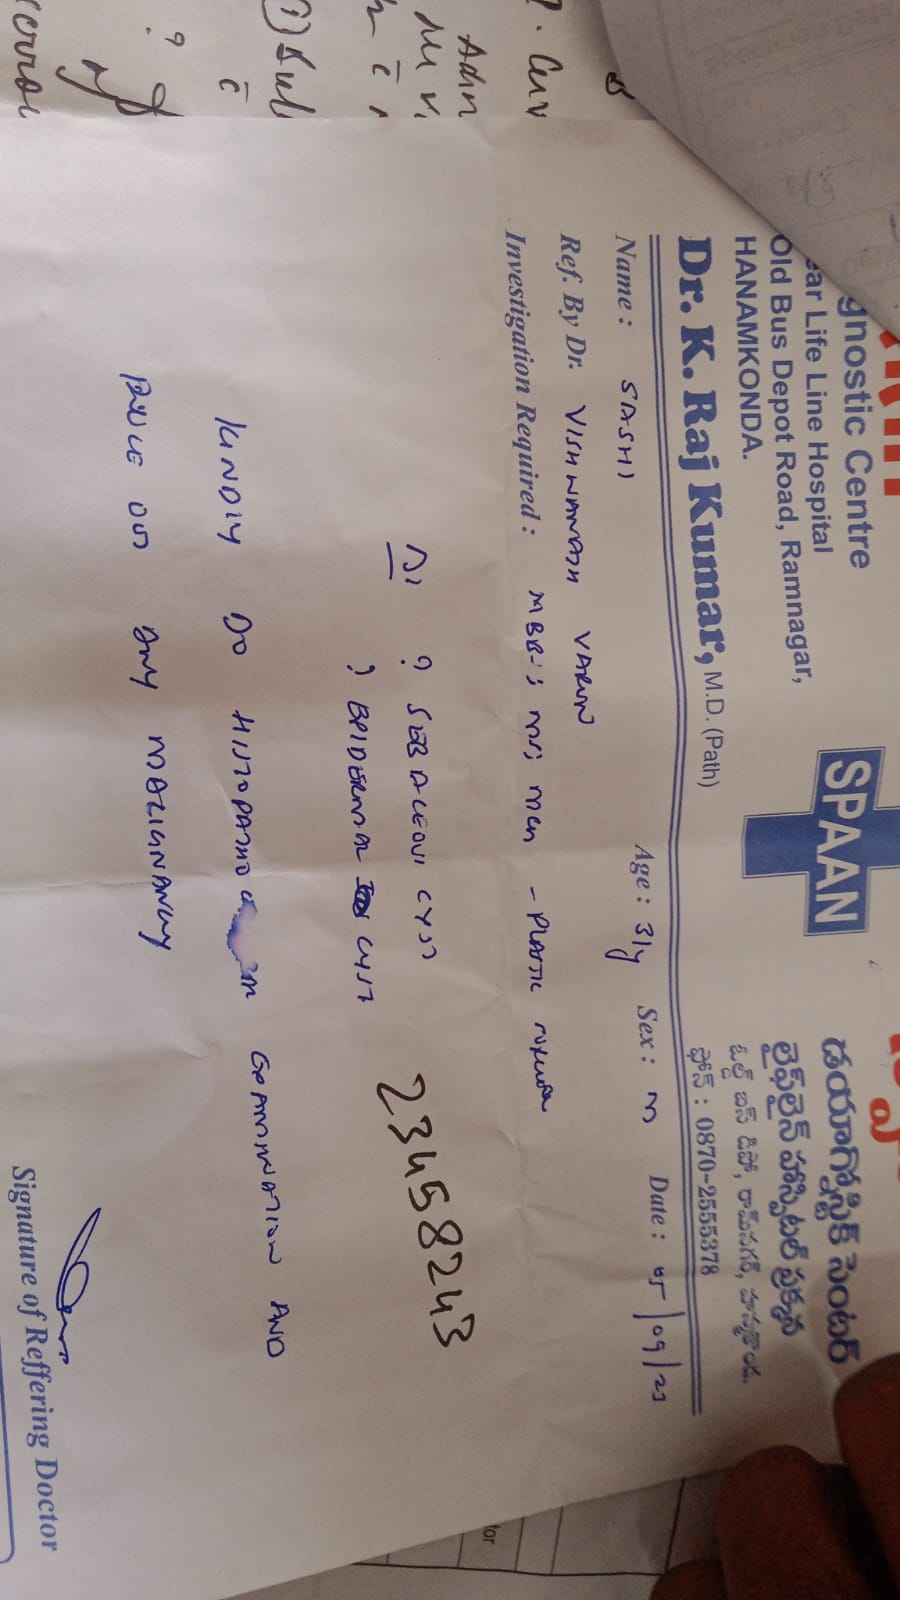 SPAAN
gnostic Centre
ear Life Line Hospital
Old Bus Depot Road, Ramnagar,
HANAMKONDA.
డయాగ్నోస్టిక్ సెంటర్
లైఫ్‌లైన్ హాస్పిటల్ ప్రక్కన
ఓల్డ్ బస్ డిపో, రామ్‌నగర్, హన్మకొండ.
ఫోన్ : 0870-2555378
Dr. K. Raj Kumar, M.D. (Path)
Name : SASHI Age : 31y Sex : M Date : 05/09/23
Ref. By Dr. VISHWANATH VARUN
MBBS; MS; MCH - PLASTIC
Investigation Required :
? SEBACEOUS CYST
? EPIDERMAL CYST
23458243
KINDLY DO EXAMINATION AND
RULE OUT ANY MALIGNANCY
Signature of Reffering Doctor